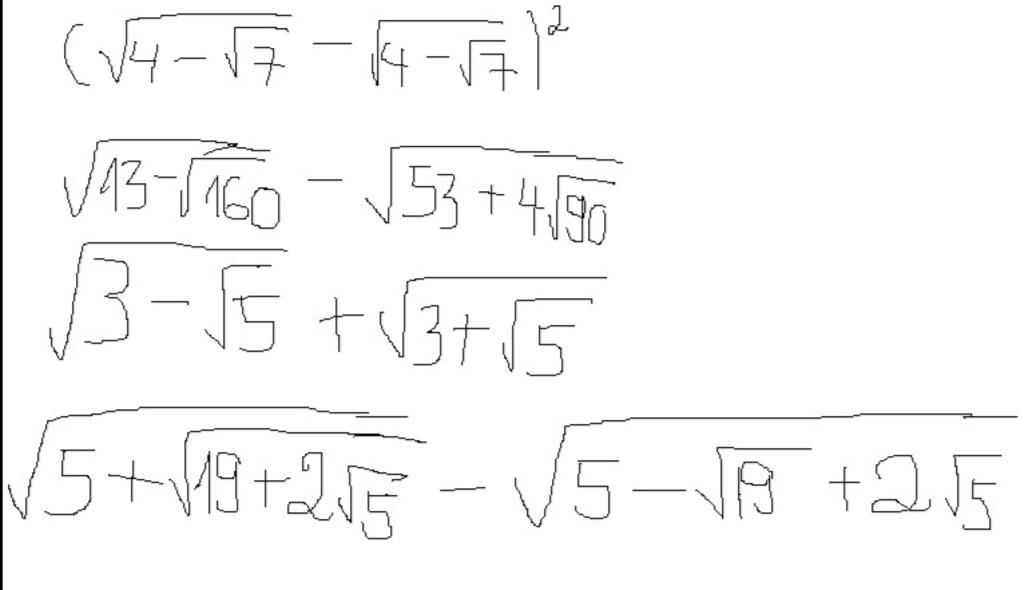 (√(4 − √7) − √(4 − √7))²
√(13 − √160) − √(53 + 4√90)
√(3 − √5) + √(3 + √5)
√(5 + √(19 + 2√5)) − √(5 − √19 + 2√5)